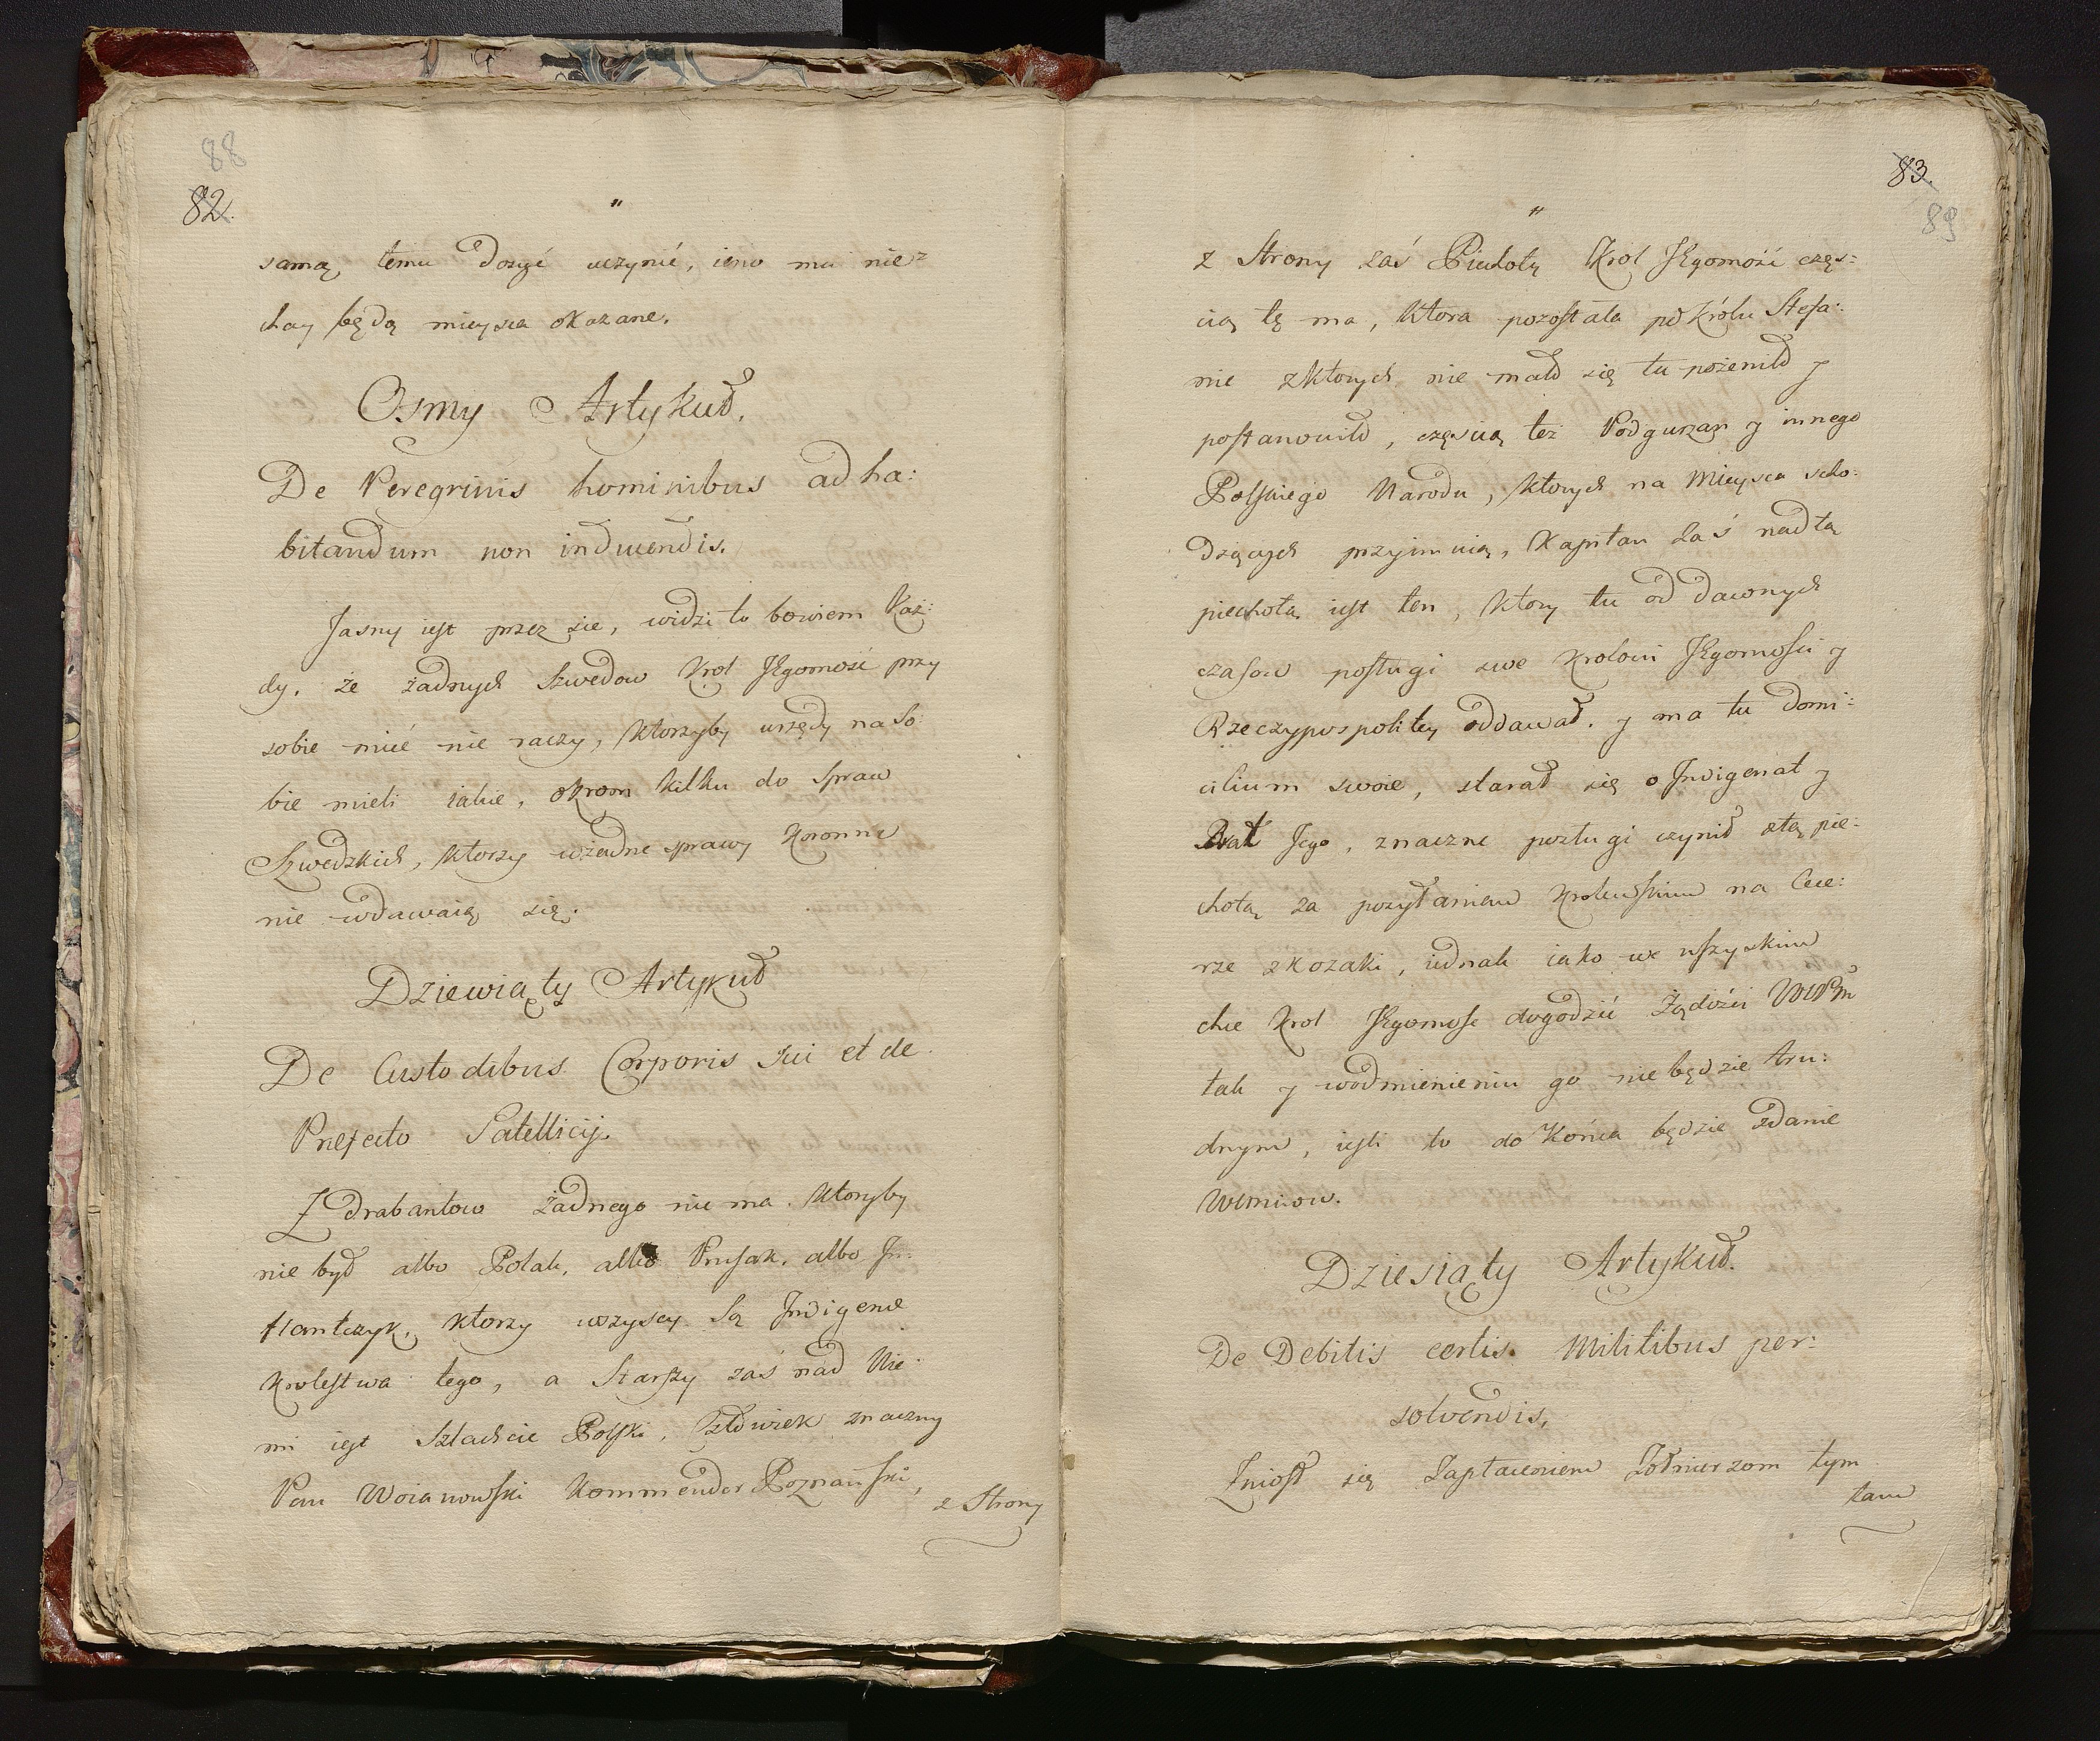 88
82.
"
samą temu dosyć uczynić, ieno mu nie=
chay będą mieysca okazane.
Osmy Artykuł.
De Peregrinis hominibus ad ha:
bitandum non inducendis.
Jasny iest przez sie, widzi to bowiem Każ:
dy, że żadnych Szwedow Krol JEgomość przy
sobie mieć nie raczy, ktorzyby urzędy na So:
bie mieli iakie, okrom kilku do Spraw
Szwedzkich, ktorzy wżadne sprawy Koronne
nie wdawaią się.
Dziewiąty Artykuł
De Custodibus Corporis sui et de
Prefecto Satellicij.
Z drabantow żadnego nie ma. ktoryby
nie był albo Polak, albo Prusak, albo In:
flantczyk, ktorzy wszyscy są Indigenæ
Krolestwa tego, a Starszy zaś nad Nie:
mi iest Szlachcic Polski, Człowiek znaczny
Pan Woianowski Kommendor Poznański,
z Strony
83.
89
"
z Strony zaś Piechoty Krol JEgomość częs:
cią tę ma, ktora pozostała po Królu Stefa:
nie z ktorych nie mało się tu pożeniło y
postanowiło, częscią też Podgurzan y innego
Polskiego Narodu, ktorych na Mieysca scho:
dzących przyimuią, Kapitan zaś nad tą
piechotą iest ten, ktory tu od dawnych
czasow posługi swe Krolowi JEgomości y
Rzeczypospolitey oddawał. y ma tu Domi:
cilium swoie, starał się o Indigenat y
Brat Jego, znaczne posługi czynił ztą pie:
chotą za posyłaniem Krolewskim na Cece:
rze z kozaki, iednak iako we wszyskim
chce Krol JEgomość dogodzić Żądości WMPm
tak y wodmienieniu go nie będzie tru:
dnym, iesli to do Końca będzie zdanie
WMmciow.
Dziesiąty Artykuł.
De Debitis certis Militibus per:
solvendis.
Zniosł się Zapłaceniem Żołnierzom tym
tam